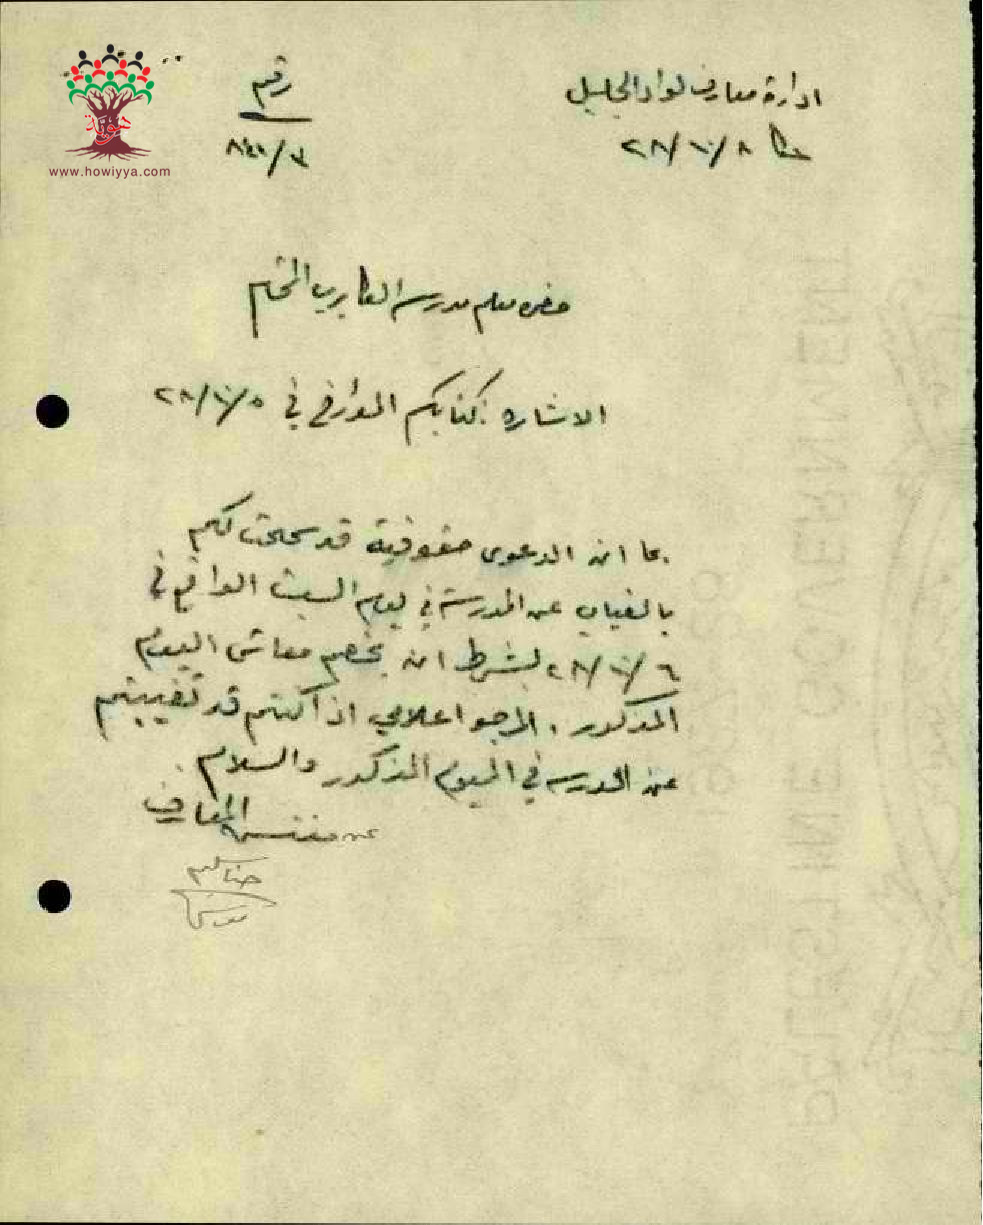 ادارة معارف لواء الجليل
عكا ٢٨/١٠/٨
رقم
www.howiyya.com
حضرة معلم مدرسة المحترم
الاشارة: كتابكم المؤرخ في ٢٨/١٠/٥
بما ان الدعوى حقوقية قد سمحت لكم
بالغياب عن المدرسة في يوم السبت الواقع في
٢٨/١٠/٦ بشرط ان يخصم معاش اليوم
المذكور. ارجو اعلامي اذا كنتم قد تغيبتم
عن المدرسة في اليوم المذكور والسلام.
عن مفتش المعارف
PALESTINE GOVERNMENT